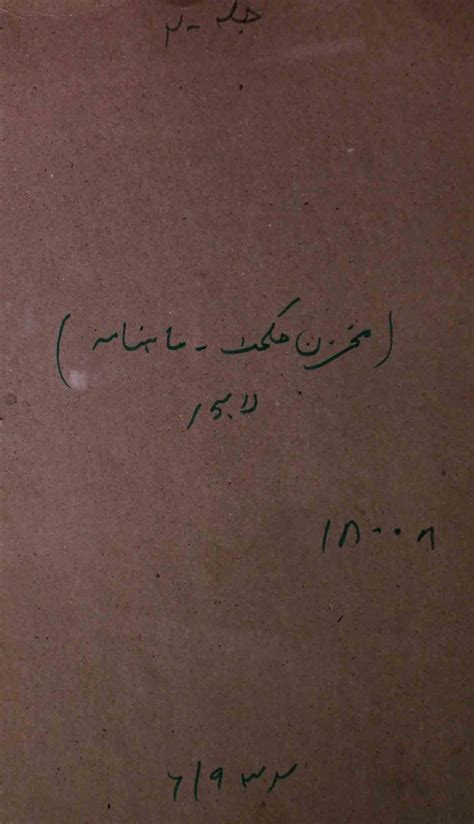 جلد - ۲
(مخزن حکمت - ماہنامہ)
لاہور
۱۸۰۰۸
۱۹۳۲ء